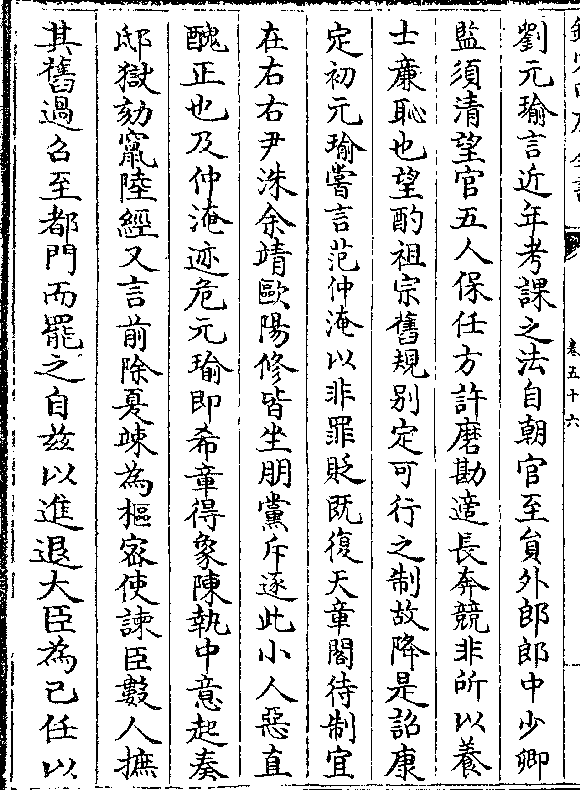 劉元瑜言近年考課之法自朝官至員外郎郎中少卿
監須清望官五人保任方許磨勘適長奔競非所以養
士廉恥也望酌祖宗舊規別定可行之制故降是詔康
定初元瑜嘗言范仲淹以非罪貶既復天章閣待制宜
在右右尹洙余靖歐陽修皆坐朋黨斥逐此小人惡直
醜正也及仲淹迹危元瑜即希章得象陳執中意起奏
邸獄劾竄陸經又言前除夏竦為樞宻使諫臣數人摭
其舊過召至都門而罷之自兹以進退大臣為己任以
卷五十六